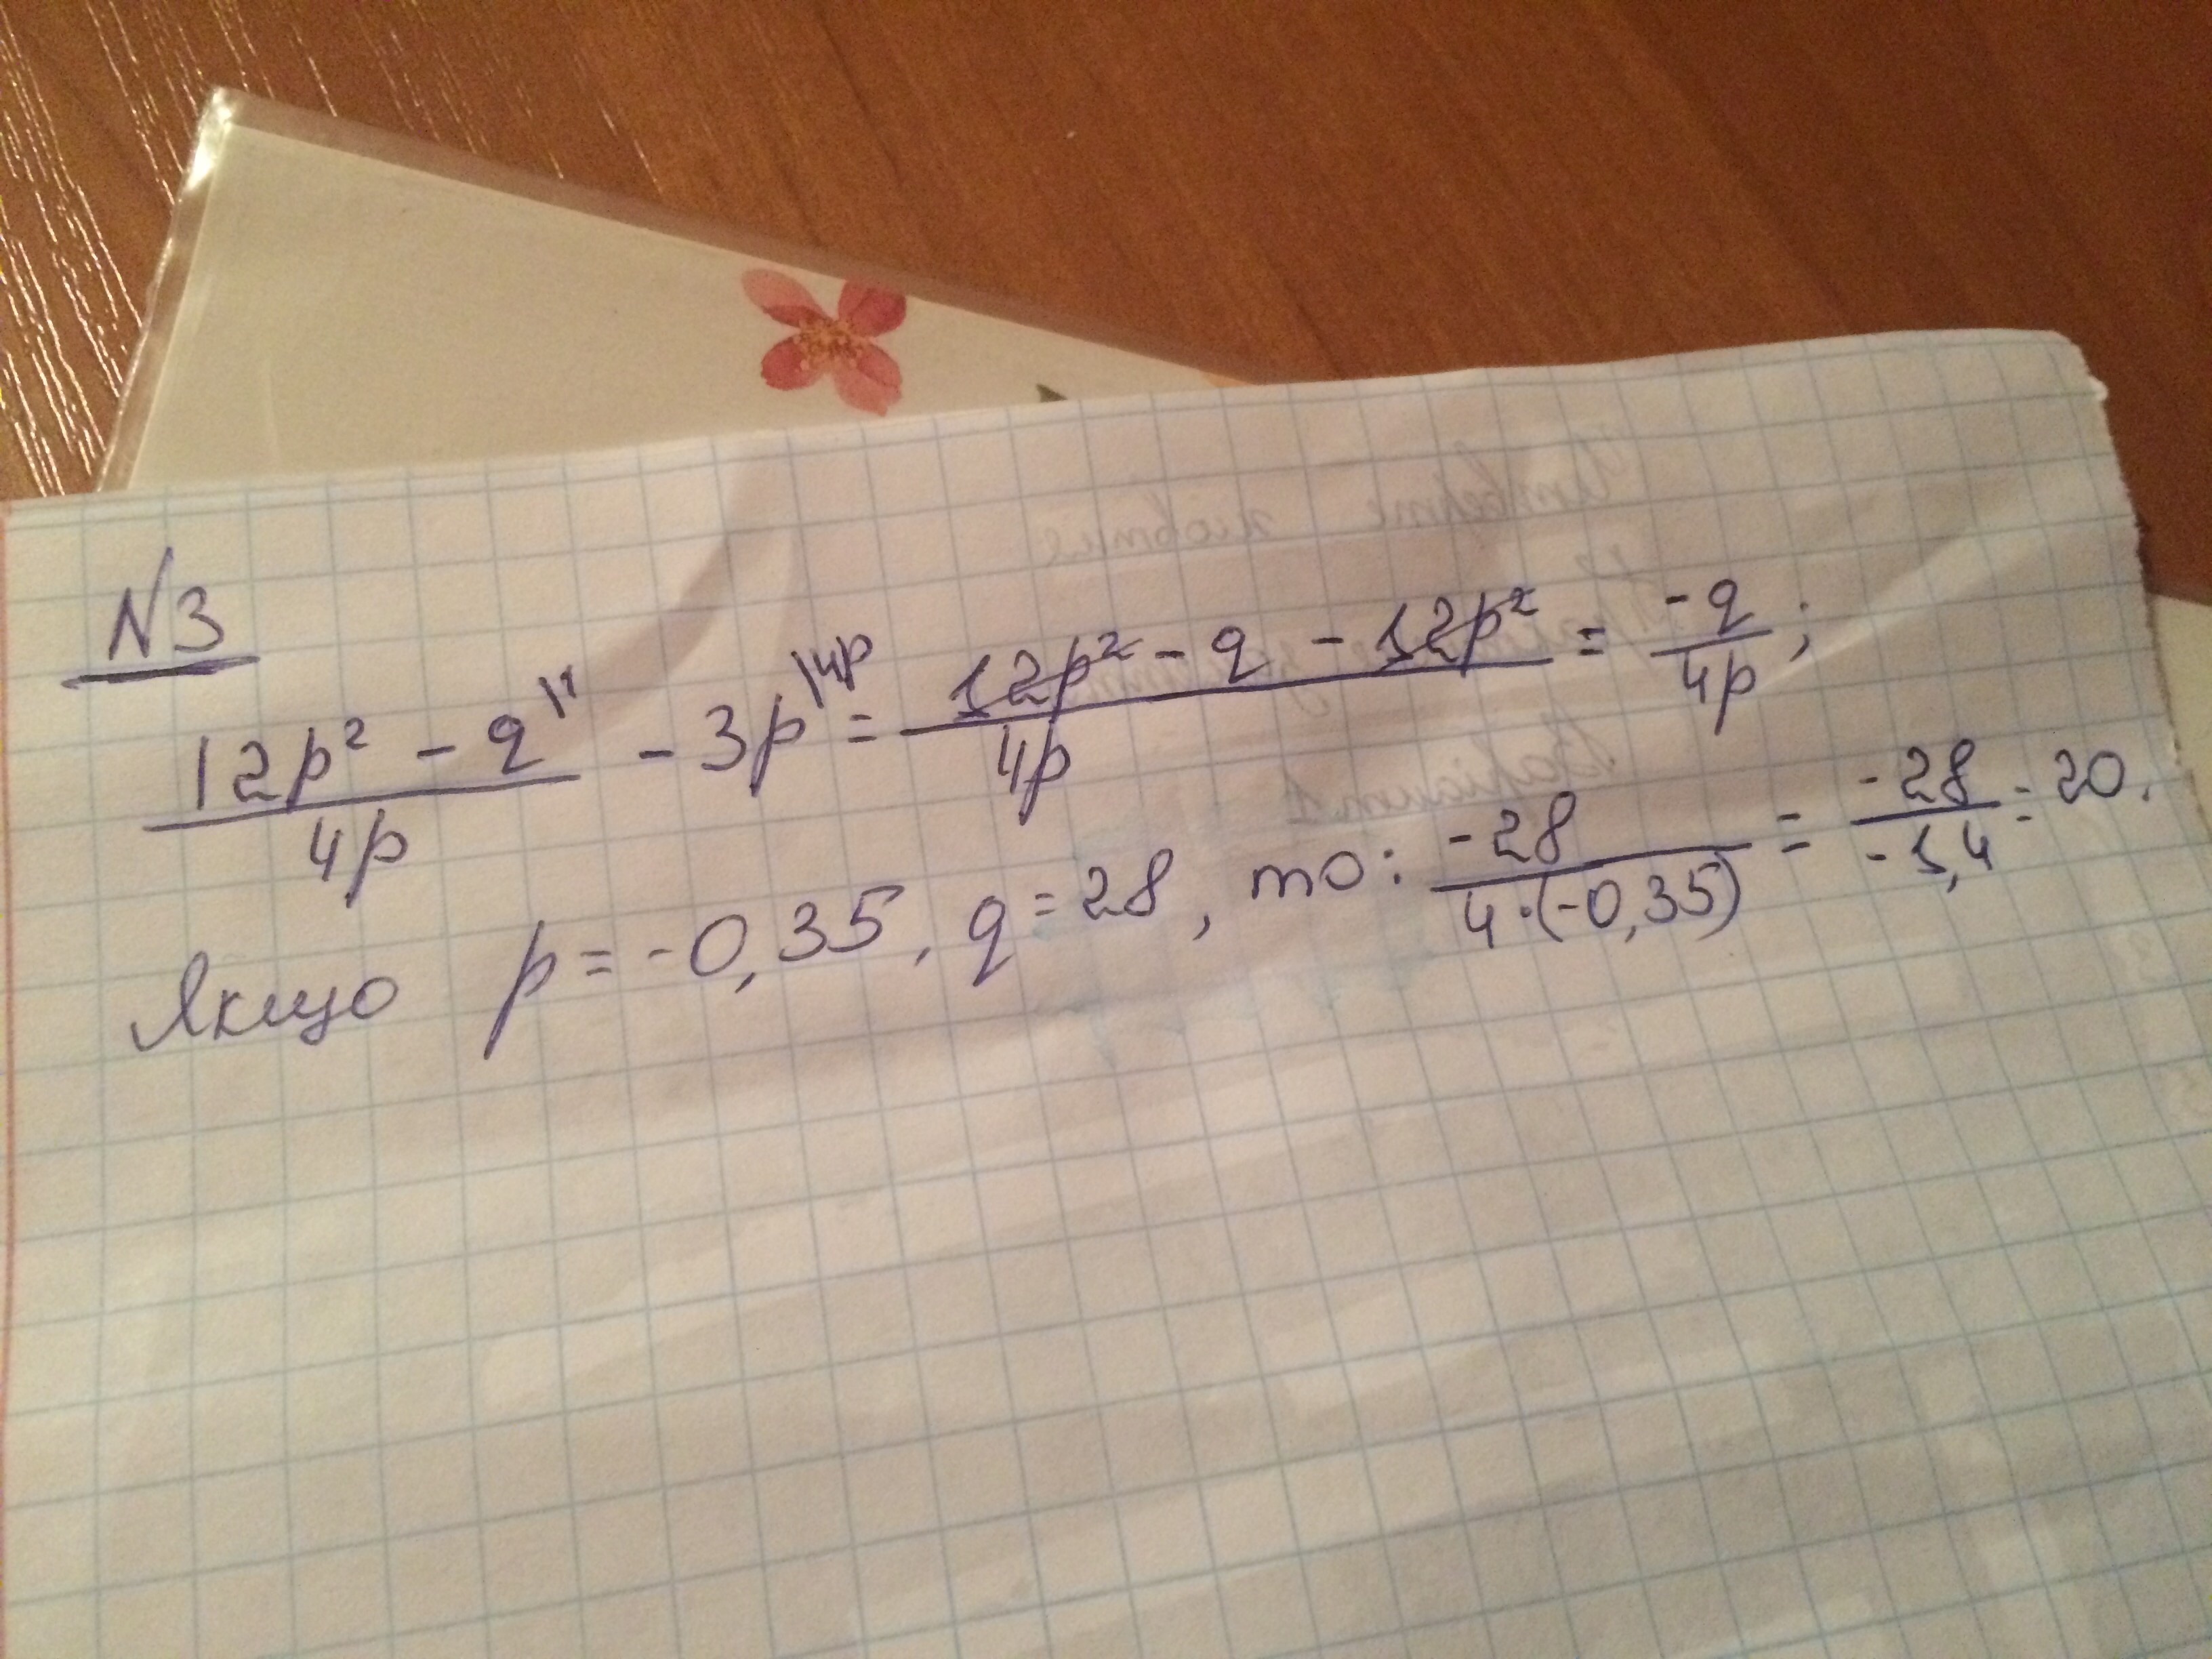 N3
12p² - q |¹ / 4p - 3p |4p = 12p² - q - 12p² / 4p = -q / 4p ;
Якщо p = -0,35, q = 28, то: -28 / 4·(-0,35) = -28 / -1,4 = 20.